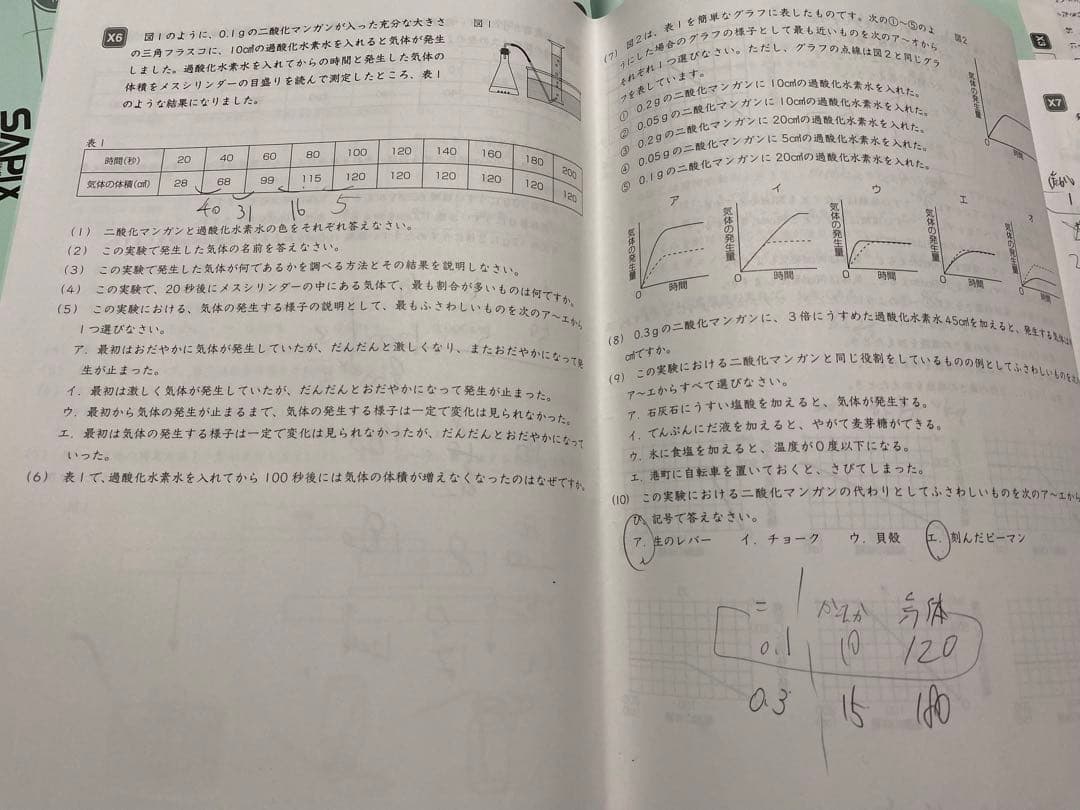 SAPIX
X6
図1のように、0.1gの二酸化マンガンが入った充分な大きさ
の三角フラスコに、10㎤の過酸化水素水を入れると気体が発生
しました。過酸化水素水を入れてからの時間と発生した気体の
体積をメスシリンダーの目盛りを読んで測定したところ、表1
のような結果になりました。
図1
表1
時間(秒) 20 40 60 80 100 120 140 160 180 200
気体の体積(㎤) 28 68 99 115 120 120 120 120 120 120
40 31 16 5
(1) 二酸化マンガンと過酸化水素水の色をそれぞれ答えなさい。
(2) この実験で発生した気体の名前を答えなさい。
(3) この実験で発生した気体が何であるかを調べる方法とその結果を説明しなさい。
(4) この実験で、20秒後にメスシリンダーの中にある気体で、最も割合が多いものは何ですか。
(5) この実験における、気体の発生する様子の説明として、最もふさわしいものを次のア〜エから
1つ選びなさい。
ア. 最初はおだやかに気体が発生していたが、だんだんと激しくなり、またおだやかになって発
生が止まった。
イ. 最初は激しく気体が発生していたが、だんだんとおだやかになって発生が止まった。
ウ. 最初から気体の発生が止まるまで、気体の発生する様子は一定で変化は見られなかった。
エ. 最初は気体の発生する様子は一定で変化は見られなかったが、だんだんとおだやかになって
いった。
(6) 表1で、過酸化水素水を入れてから100秒後には気体の体積が増えなくなったのはなぜですか。
(7) 図2は、表1を簡単なグラフに表したものです。次の①〜⑤のよ
うにした場合のグラフの様子として最も近いものを次のア〜オから
それぞれ1つ選びなさい。ただし、グラフの点線は図2と同じグラ
フを表しています。
① 0.2gの二酸化マンガンに10㎤の過酸化水素水を入れた。
② 0.05gの二酸化マンガンに10㎤の過酸化水素水を入れた。
③ 0.2gの二酸化マンガンに20㎤の過酸化水素水を入れた。
④ 0.05gの二酸化マンガンに5㎤の過酸化水素水を入れた。
⑤ 0.1gの二酸化マンガンに20㎤の過酸化水素水を入れた。
図2
気体の発生量
0
時間
ア
気体の発生量
0
時間
イ
気体の発生量
0
時間
ウ
気体の発生量
0
時間
エ
気体の発生量
0
時間
オ
気体の発生量
0
時間
(8) 0.3gの二酸化マンガンに、3倍にうすめた過酸化水素水45㎤を加えると、発生する気体は
㎤ですか。
(9) この実験における二酸化マンガンと同じ役割をしているものの例としてふさわしいものを
ア〜エからすべて選びなさい。
ア. 石灰石にうすい塩酸を加えると、気体が発生する。
イ. でんぷんにだ液を加えると、やがて麦芽糖ができる。
ウ. 氷に食塩を加えると、温度が0度以下になる。
エ. 港町に自転車を置いておくと、さびてしまった。
(10) この実験における二酸化マンガンの代わりとしてふさわしいものを次のア〜エから
び、記号で答えなさい。
ア. 生のレバー イ. チョーク ウ. 貝殻 エ. 刻んだピーマン
二 かさか 気体
0.1 10 120
0.3 15 180
X3
X7